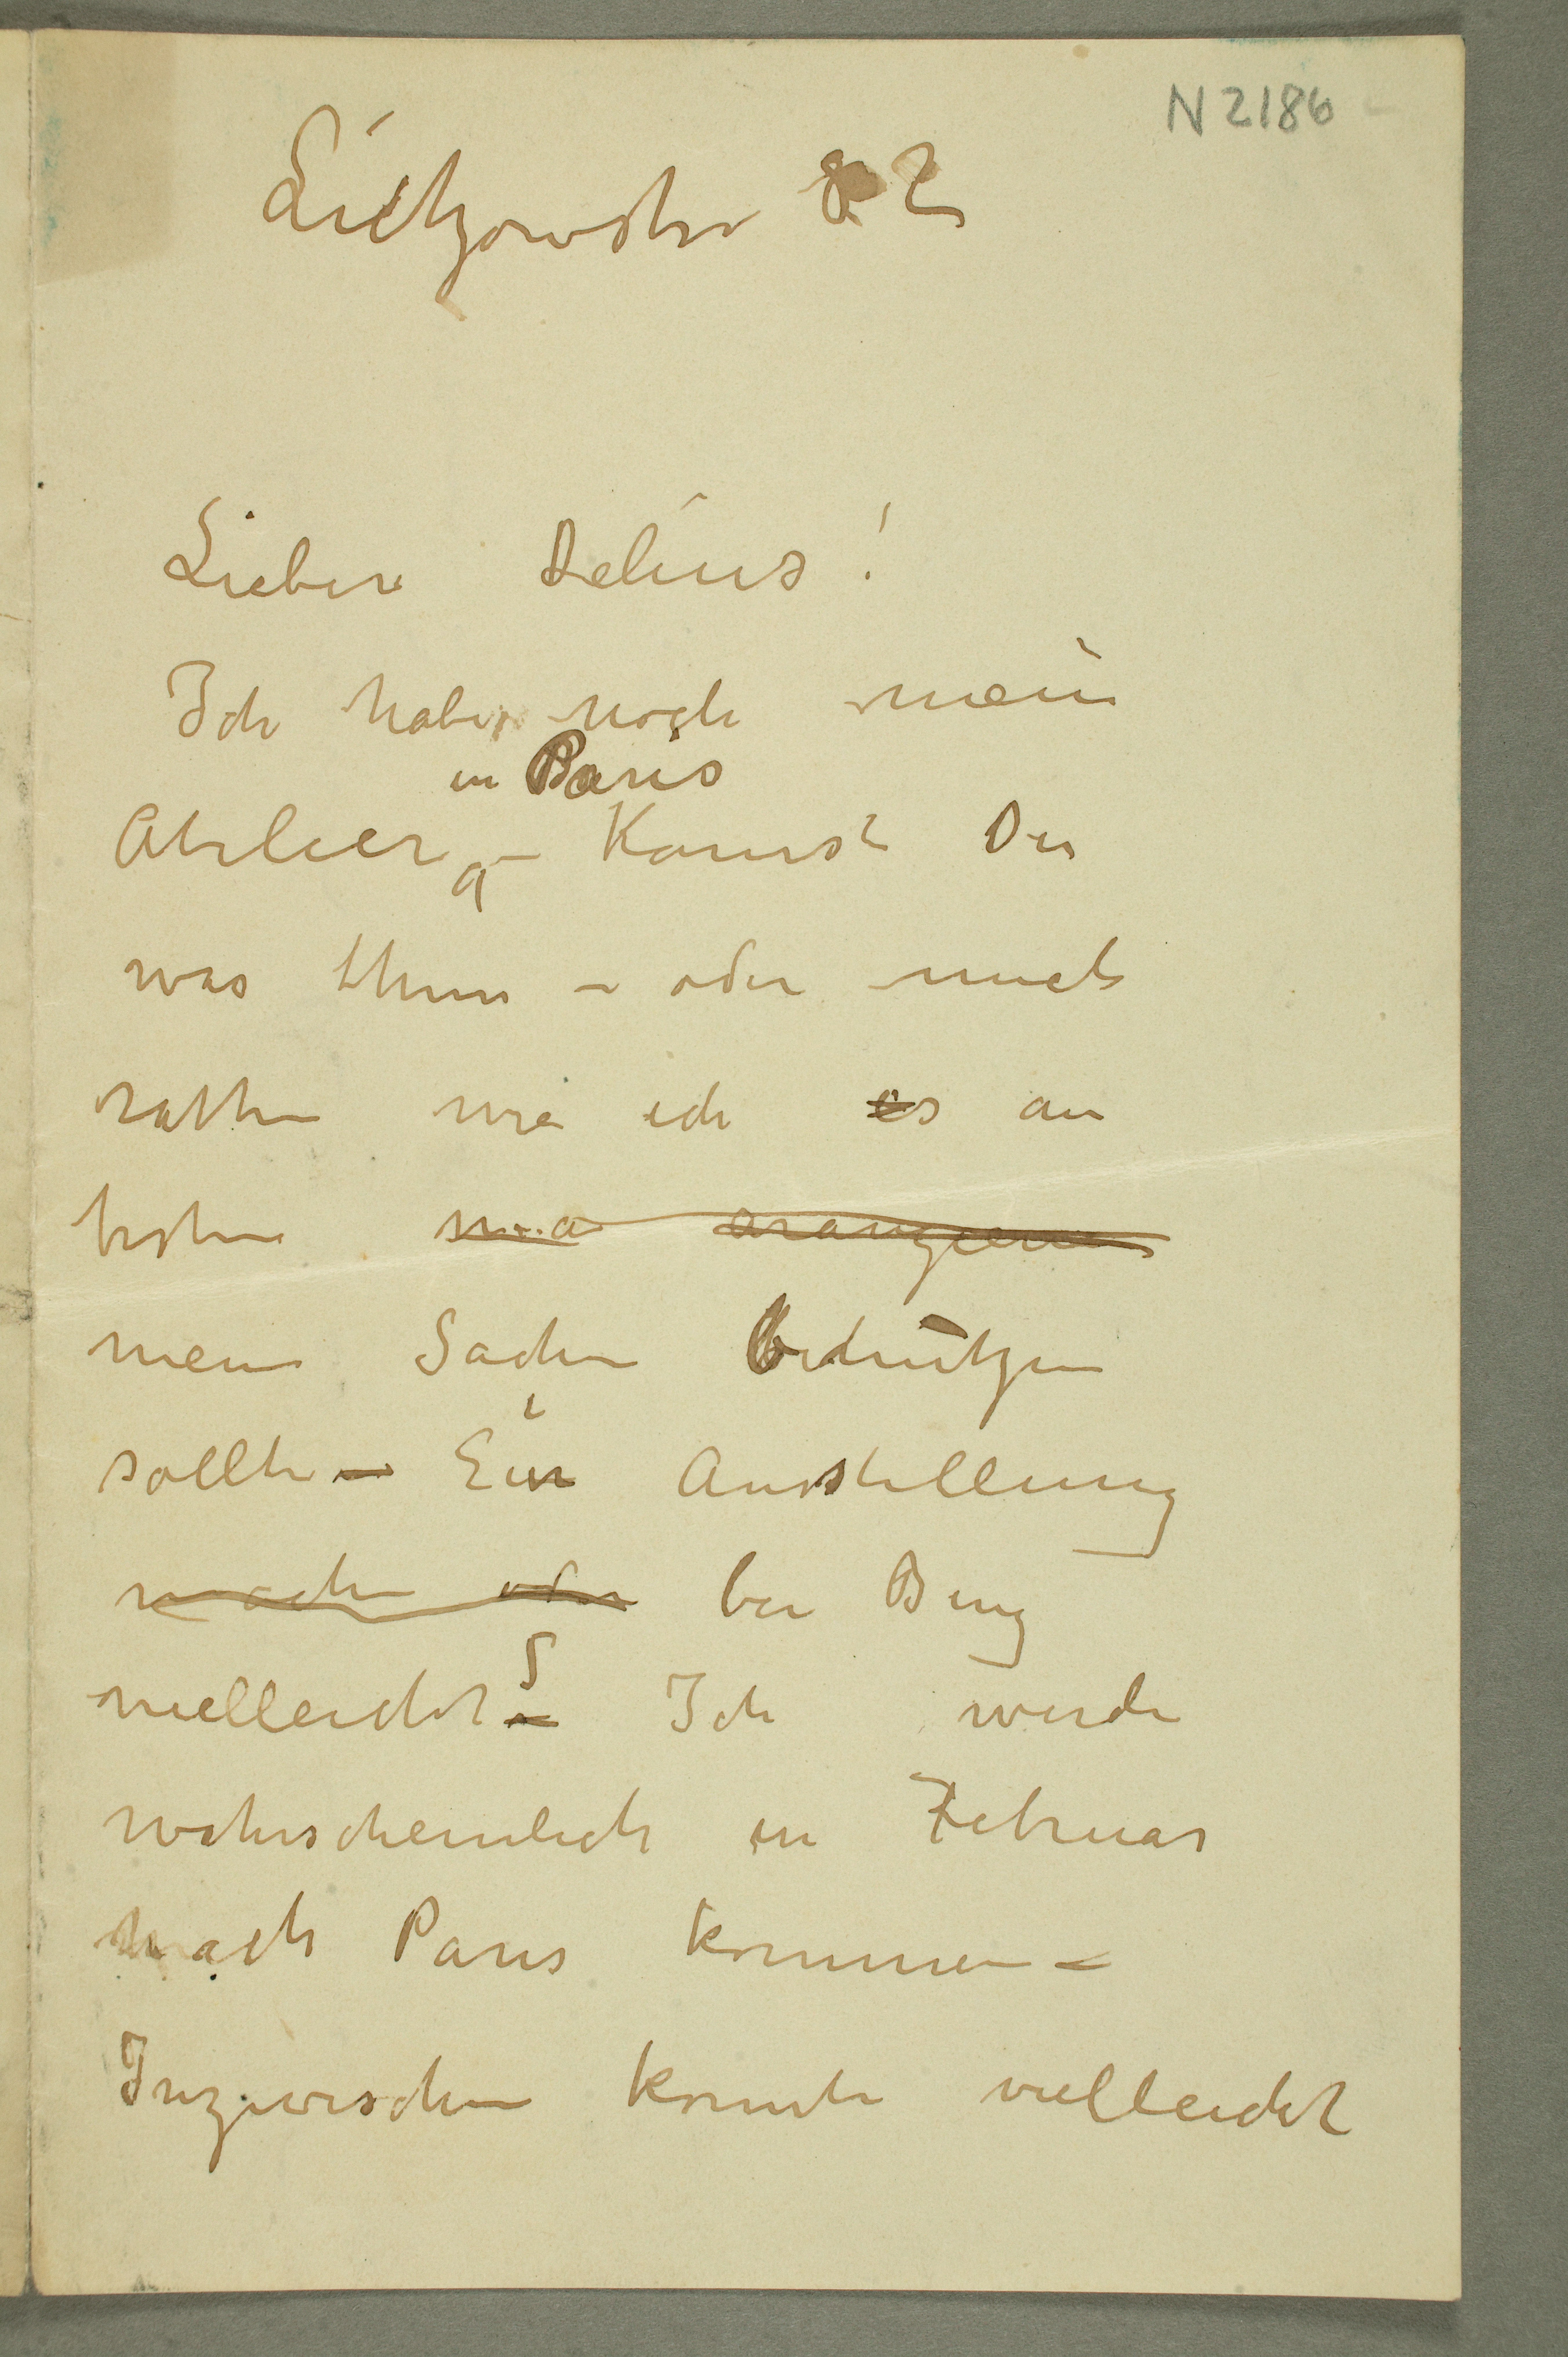 N 2186
Lützowstr 82
Lieber Delius!
Ich habe noch mein
in Paris
Atelier – Kannst Du
was thun – oder mich
rathen wie ich es am
besten arangieren
meine Sachen benützen
sollte – Ein Ausstellung
machen oder bei Bing
vielleicht? Ich werde
wahrscheinlich in Februar
nach Paris kommen –
Inzwischen konnte vielleicht